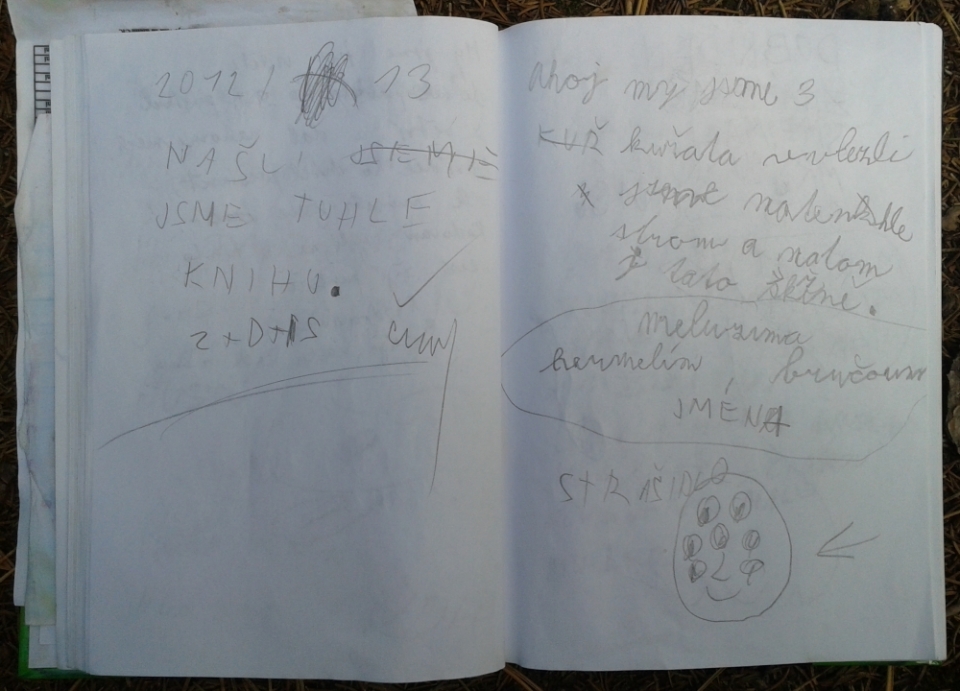 2012 / 13
NAŠLI
JSME TUHLE
KNIHU.
Z+D+
ahoj my jsme 3
KUŘ kuřata vilezli
jsme natenhle
strom a natom
je tato
meluzima
hermelim bručoum
JMÉNA
STRAŠIDLO